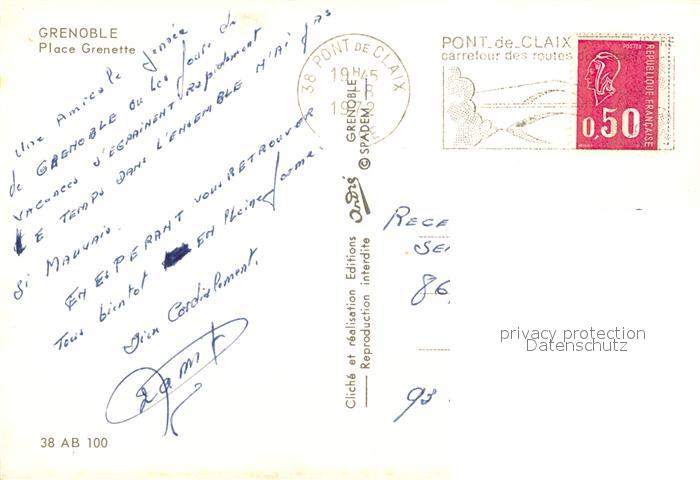 GRENOBLE
Place Grenette
Une Amicale Pensée
de GRENOBLE OU LES Jours de
VACANCES S'EGRAINENT RAPIDEMENT
LE TEMPS DANS L'ENSEMBLE N'AI PAS
Si MAUVAIS.
EN ESPERANT VOUS RETROUVER
Tous bientot EN PLEINE forme.
Bien Cordialement.
38 AB 100
Cliché et réalisation Editions André © SPADEM GRENOBLE
Reproduction interdite
38 PONT DE CLAIX
19H45
1972
PONT-de-CLAIX
carrefour des routes
POSTES
REPUBLIQUE FRANÇAISE
0,50
RECE
SE
86,
93
privacy protection
Datenschutz